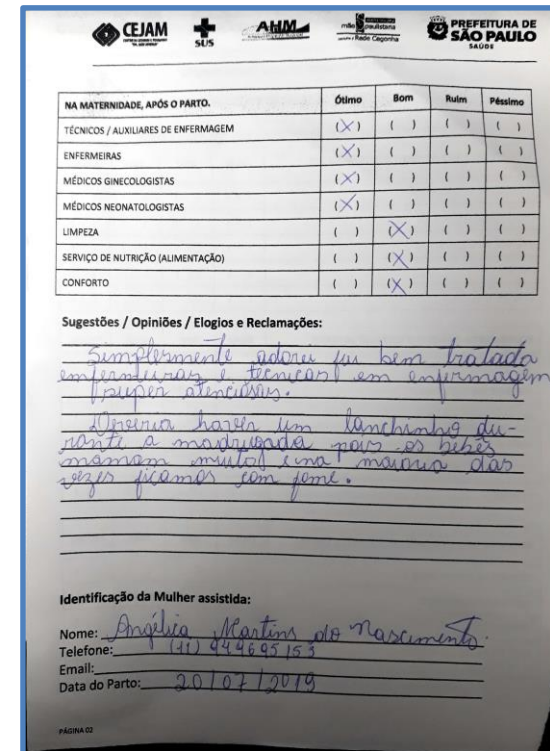 CEJAM
SUS
AHM
mãe paulistana
Rede Cegonha
PREFEITURA DE
SÃO PAULO
SAÚDE
NA MATERNIDADE, APÓS O PARTO. Ótimo Bom Ruim Péssimo
TÉCNICOS / AUXILIARES DE ENFERMAGEM (X) ( ) ( ) ( )
ENFERMEIRAS (X) ( ) ( ) ( )
MÉDICOS GINECOLOGISTAS (X) ( ) ( ) ( )
MÉDICOS NEONATOLOGISTAS (X) ( ) ( ) ( )
LIMPEZA ( ) (X) ( ) ( )
SERVIÇO DE NUTRIÇÃO (ALIMENTAÇÃO) ( ) (X) ( ) ( )
CONFORTO ( ) (X) ( ) ( )
Sugestões / Opiniões / Elogios e Reclamações:
Simplesmente adorei fui bem tratada
enfermeiras e técnicas em enfermagem
super atenciosas.
Deveria haver um lanchinho du-
rante a madrugada pois os bebês
mamam muito e na maioria das
vezes ficamos com fome.
Identificação da Mulher assistida:
Nome: Angélica Martins do Nascimento.
Telefone: (11) 944695153
Email:
Data do Parto: 20/07/2019
PÁGINA 02